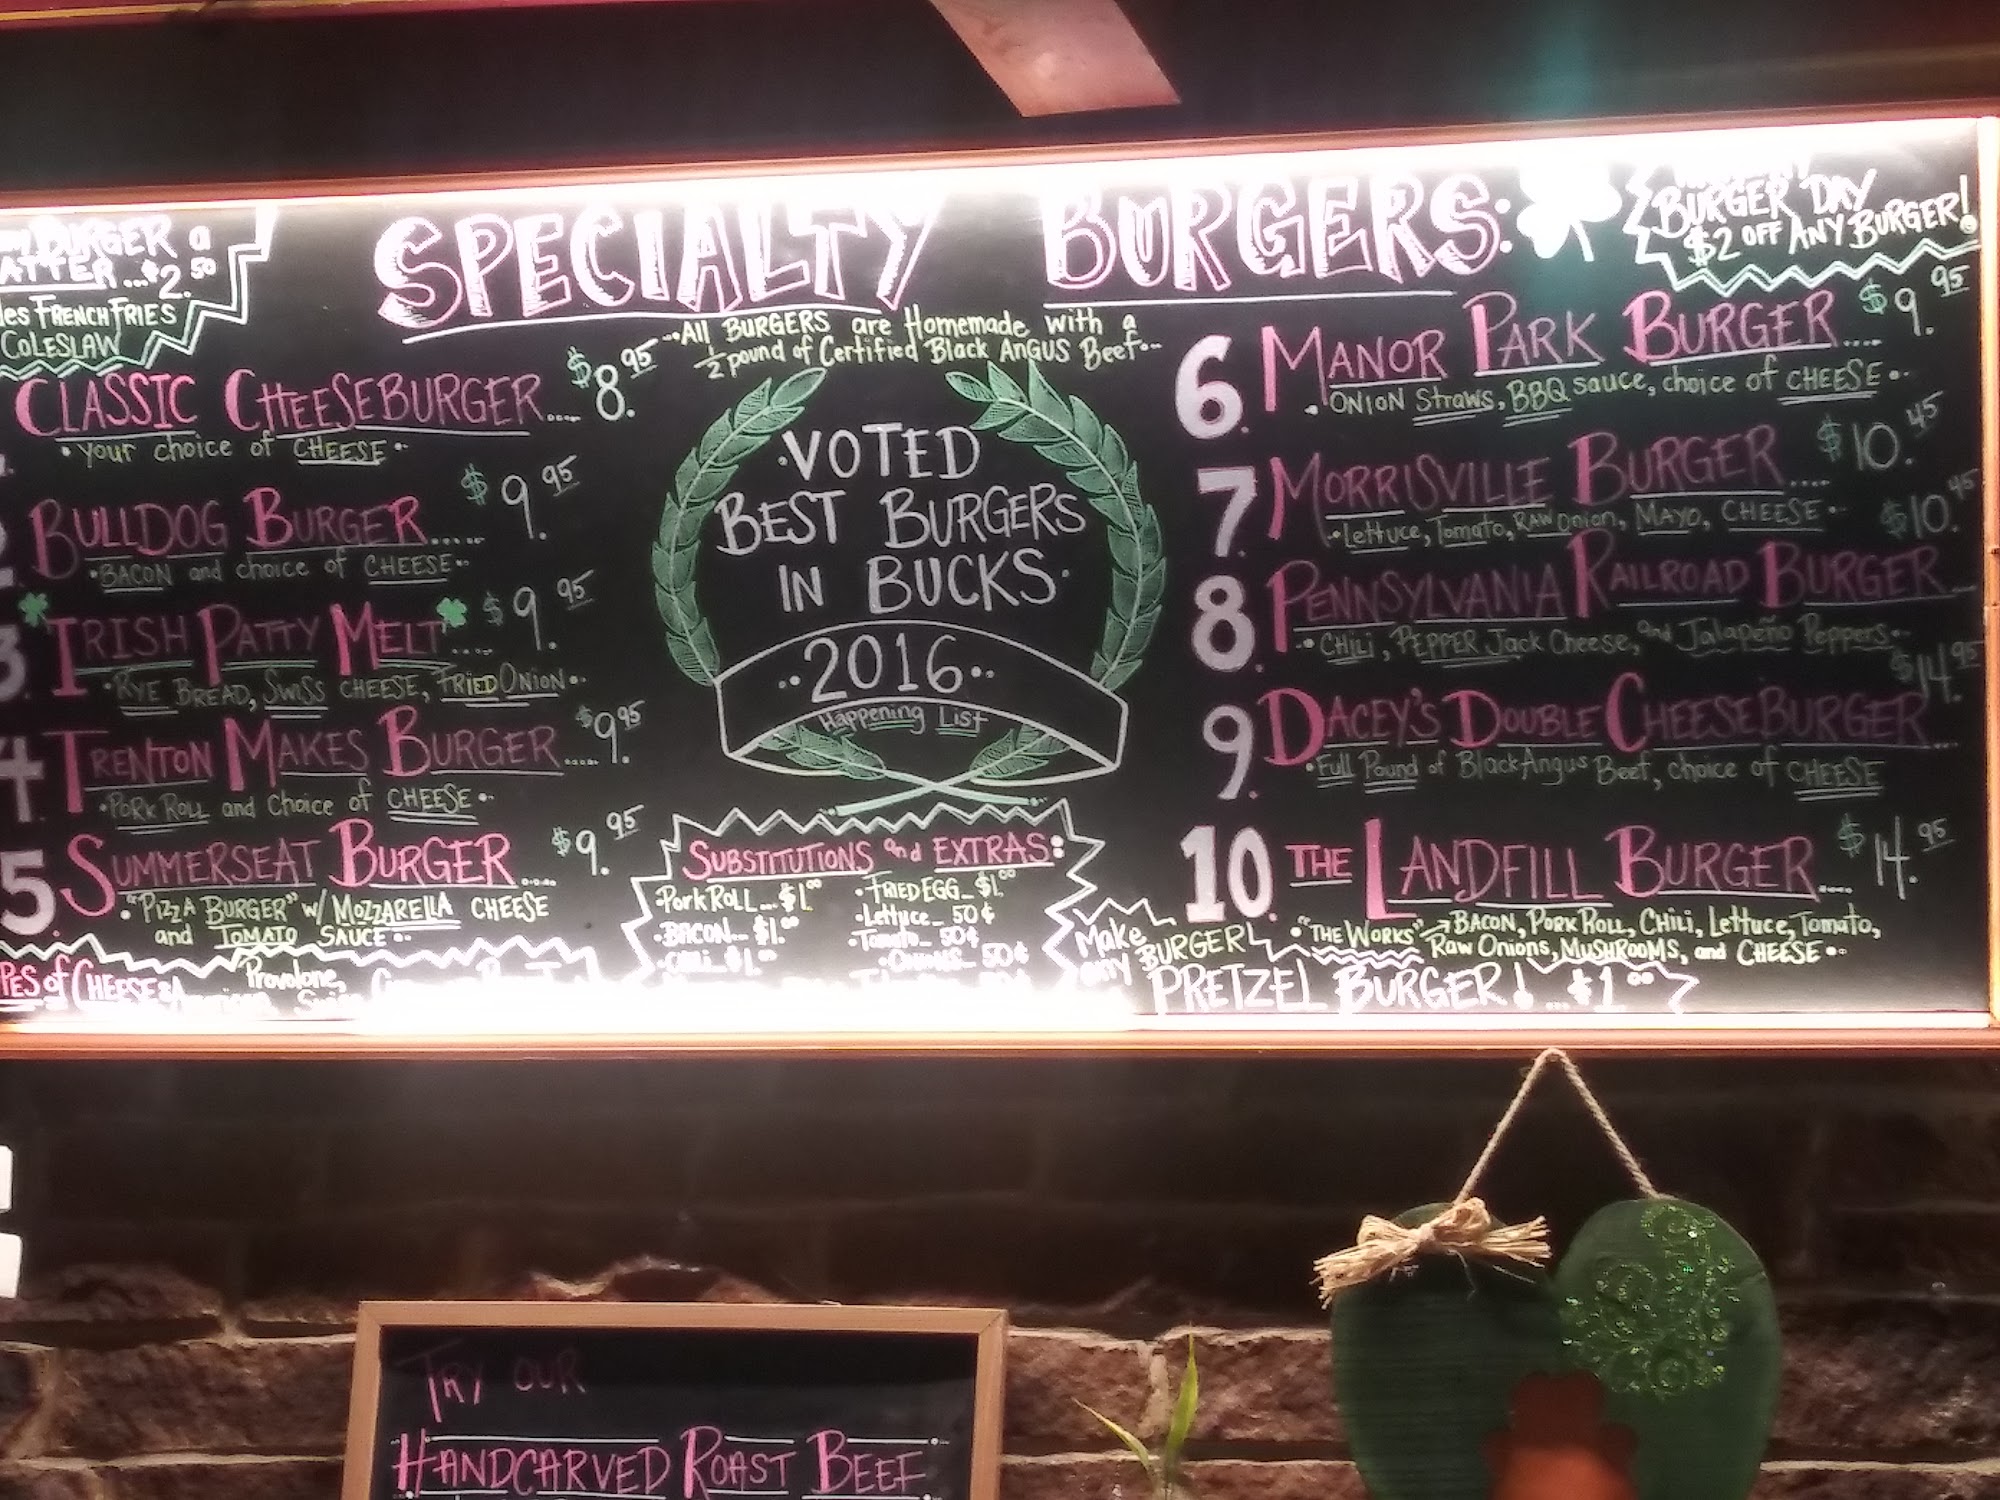 SPECIALTY BURGERS:
BURGER a
ATTER...$2.50
FRENCH FRIES
COLESLAW
BURGER DAY
$2 OFF ANY BURGER!
··All BURGERS are Homemade with a
½ pound of Certified Black ANGUS Beef··
CLASSIC CHEESEBURGER.... $8.95
·your choice of CHEESE··
BULLDOG BURGER..... $9.95
·BACON and choice of CHEESE··
3. IRISH PATTY MELT.... $9.95
·RYE BREAD, SWISS CHEESE, FRIED ONION··
4 TRENTON MAKES BURGER..... $9.95
·PORK ROLL and choice of CHEESE··
5. SUMMERSEAT BURGER.... $9.95
·"PIZZA BURGER" w/ MOZZARELLA CHEESE
and TOMATO SAUCE··
PES of CHEESE:
Provolone,
·VOTED
BEST BURGERS
IN BUCKS·
··2016··
Happening List
SUBSTITUTIONS and EXTRAS:
·PORK ROLL...$1.00
·BACON...$1.00
·CHILI...$1.00
·FRIED EGG...$1.00
·Lettuce...50¢
·Tomato...50¢
·ONIONS...50¢
6. MANOR PARK BURGER.... $9.95
·ONION Straws, BBQ sauce, choice of CHEESE··
7. MORRISVILLE BURGER.... $10.45
··Lettuce, Tomato, RAW ONION, MAYO, CHEESE··
8. PENNSYLVANIA RAILROAD BURGER.... $10.45
··CHILI, PEPPER Jack Cheese, and Jalapeño Peppers··
9. DACEY'S DOUBLE CHEESEBURGER.... $14.95
·Full Pound of Black Angus Beef, choice of CHEESE
10. THE LANDFILL BURGER.... $14.95
·"THE WORKS" → BACON, PORK ROLL, CHILI, Lettuce, Tomato,
Raw Onions, MUSHROOMS, and CHEESE··
Make
any BURGER
PRETZEL BURGER! ...$1.00
TRY OUR
HANDCARVED ROAST BEEF